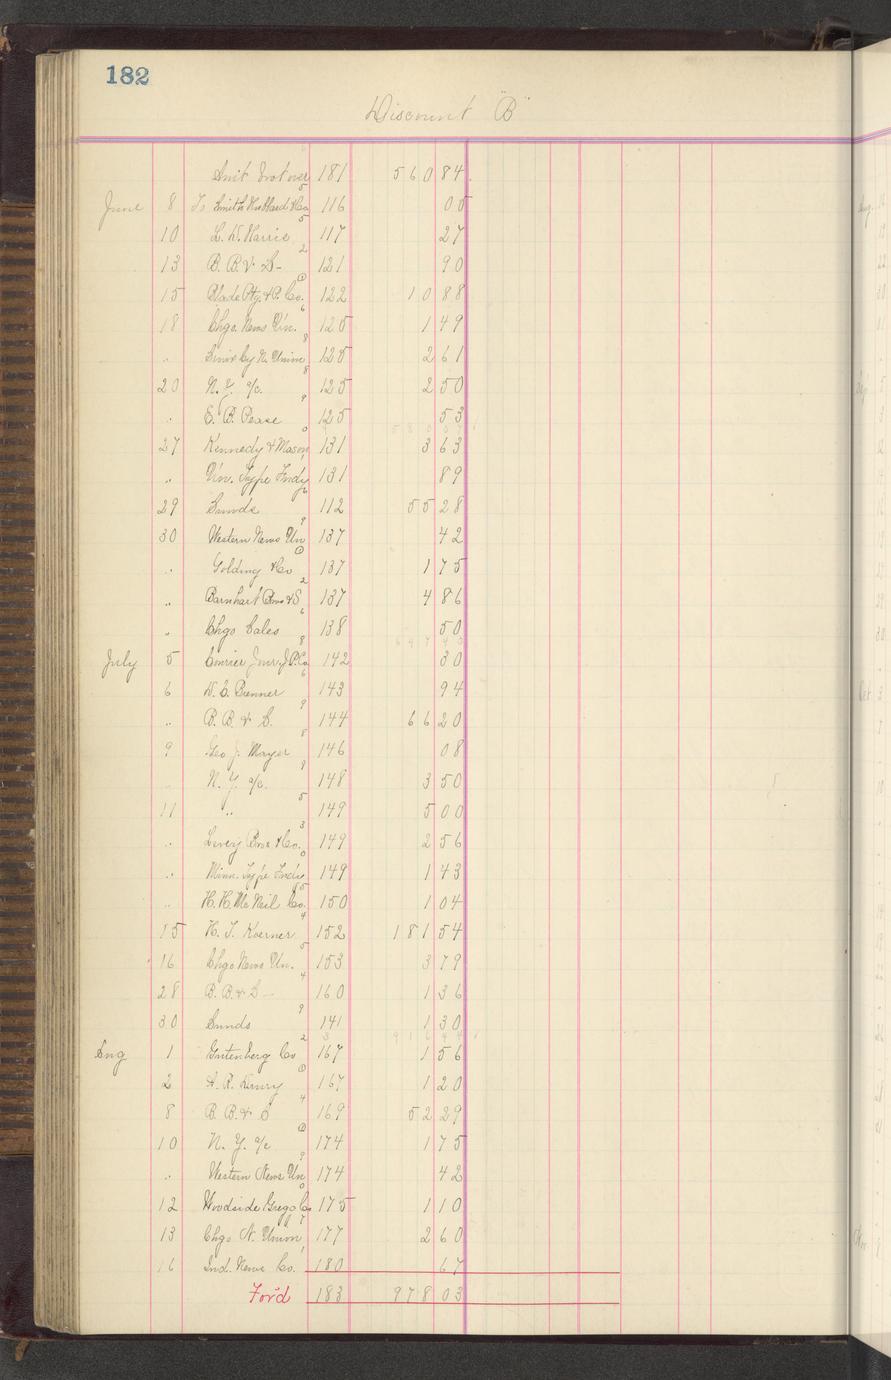 182
Discount "B"
Amt brot over 181 560 84
June 8 To Smith Hubbard & Co 116 05
10 L. W. Harris 117 27
13 B. B. & S- 121 90
15 Blade Ptg. & P. Co. 122 10 88
18 Chgo. News Un. 125 1 49
" N. Union 125 2 61
20 N. Y. a/c. 125 2 50
" E. B. Pease 125 53
27 Kennedy & Mason 131 3 63
" Un. Type Fndy 131 89
29 Sunds 112 55 28
30 Western News Un 137 42
" Golding & Co 137 1 75
" Barnhart Bros & S 137 4 86
" Chgo Sales 138 50
July 5 Courier 142 30
6 W. C. Brenner 143 94
" B. B. & S. 144 66 20
9 Geo J. Mayer 146 08
" N. Y. a/c. 148 3 50
11 " 149 5 00
" Bros & Co. 149 2 56
" Minn. Type Fndy 149 1 43
" H. H. McNeil Co. 150 1 04
15 H. T. Koerner 152 181 54
16 Chgo News Un. 153 3 79
28 B. B. & S- 160 1 36
30 Sunds 141 1 30
Aug 1 Gutenberg Co 167 1 56
2 A. R. 167 1 20
8 B. B. & S 169 52 29
10 N. Y. a/c 174 1 75
" Western News Un 174 42
12 Woodside Gregg Co 175 1 10
13 Chgo N. Union 177 2 60
16 Ind. News Co. 180 67
For'd 183 978 03